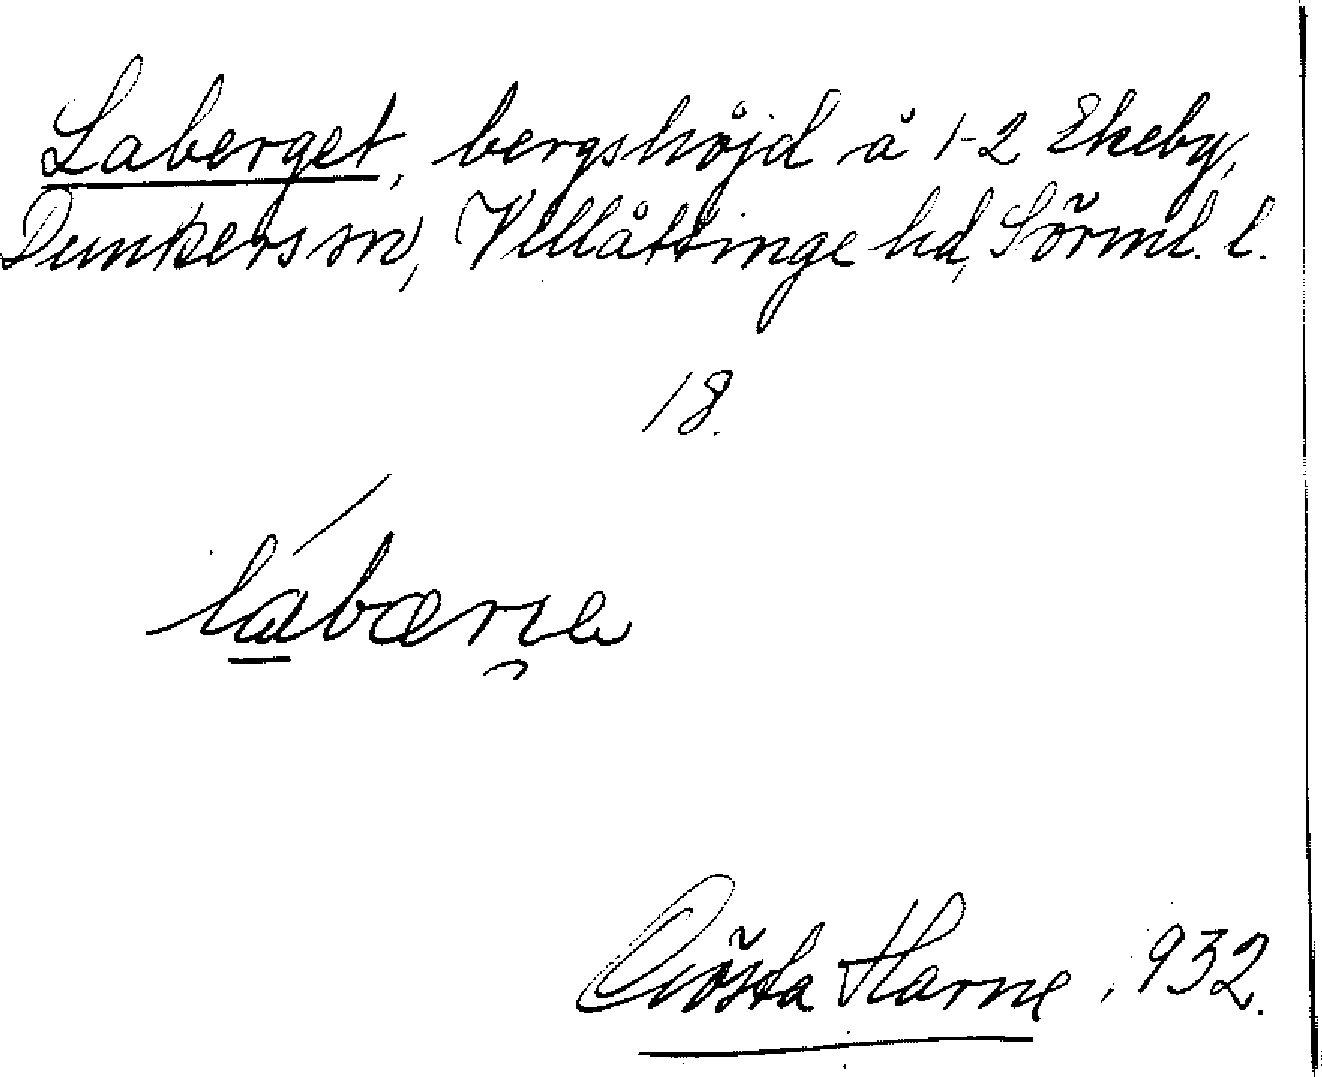 Laberget, bergshöjd å 1-2 Ekeby,
Dunkers sn, Villåttinge hd, Sörml. l.
18.
Gösta Harne, 932.